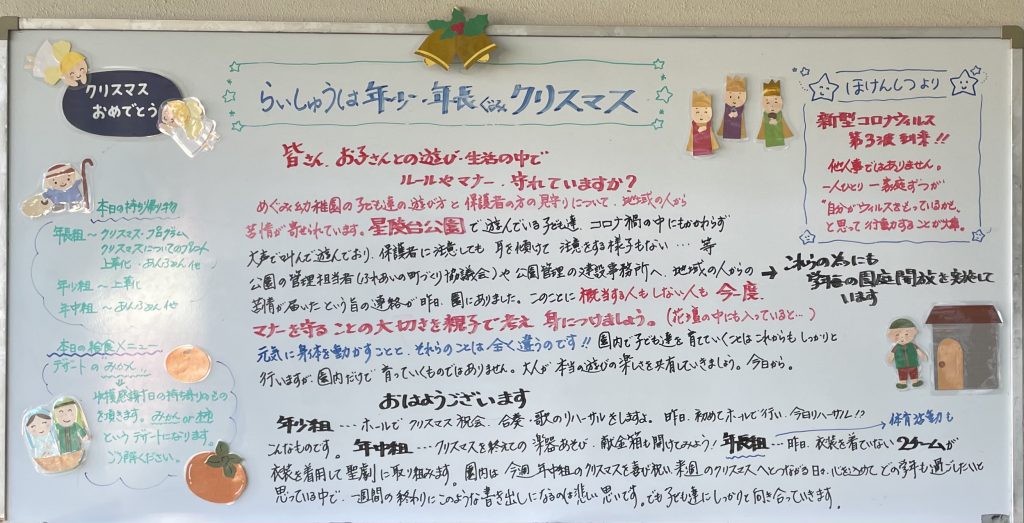 クリスマス
おめでとう
らいしゅうは 年少・年長ぐみ クリスマス
ほけんしつより
新型コロナウィルス
第3波 到来!!
他人事ではありません。
一人ひとり 一家庭ずつが
"自分がウィルスをもっているかも"
と思って行動することが大事。
皆さん、お子さんとの遊び・生活の中で
ルールやマナー、守れていますか?
めぐみ幼稚園の子ども達の遊び方と保護者の方の見守りについて、地域の人から
苦情が寄せられています。星陵台公園で遊んでいる子ども達、コロナ禍の中にもかかわらず
大声で叫んで遊んでおり、保護者に注意しても耳を傾けて注意をする様子もない… 等
公園の管理担当者(ふれあいの町づくり協議会)や公園管理の建設事務所へ、地域の人からの
苦情が届いたという旨の連絡が昨日、園にありました。このことに概当する人もしない人も今一度
マナーを守ることの大切さを親子で考え 身につけましょう。(花壇の中にも入っていると…)
元気に身体を動かすことと、それらのことは全く違うのです!! 園内で子ども達を育てていくことはこれからもしっかりと
行いますが、園内だけで育っていくものではありません。大人が本当の遊びの楽しさを共有していきましょう。今日から。
→ これらの為にも
園庭開放を実施して
います
本日の持ち帰り物
年長組〜クリスマスプログラム、
クリスマスについてのプリント
上靴、あんふぁん 他
年少組〜上靴
年中組〜あんふぁん 他
本日の給食メニュー
デザートの みかん!!
収穫感謝日の持ち寄りのもの
を頂きます。みかん or 柿
というデザートになります。
ご了解ください。
おはようございます
年少組…ホールでクリスマス祝会、合奏・歌のリハーサルをしますよ。昨日、初めてホールで行い、今日リハーサル!?
体育活動も
こんなものです。年中組…クリスマスを終えての楽器あそび、献金箱も開けてみよう! 年長組…昨日、衣装を着ていない2チームが
衣装を着用して聖劇に取り組みます。園内は今週、年中組のクリスマスを喜び祝い、来週のクリスマスへとつながる日々、心をこめてどの学年も過ごしたいと
思っている中で、一週間の終わりにこのような書き出しになるのは悲しい思いです。でも子ども達にしっかりと向き合っていきます。